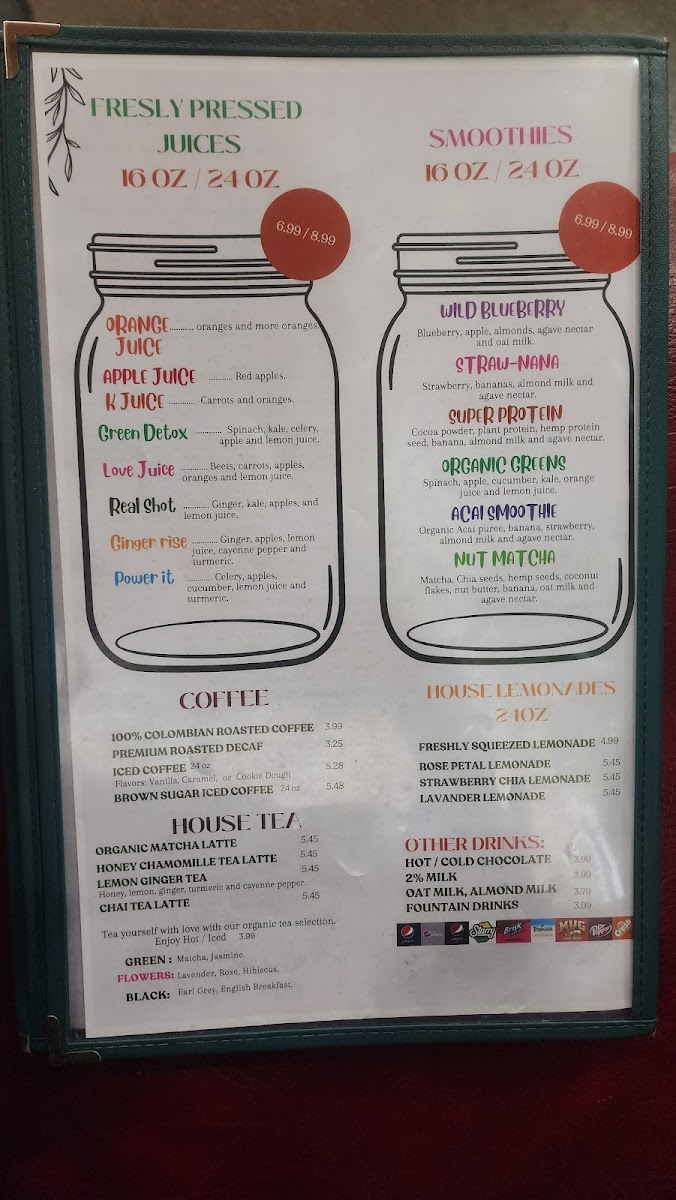 FRESLY PRESSED
JUICES
16 OZ / 24 OZ
6.99 / 8.99
ORANGE JUICE .......... oranges and more oranges.
APPLE JUICE .......... Red apples.
K JUICE .......... Carrots and oranges.
Green Detox .......... Spinach, kale, celery,
apple and lemon juice.
Love Juice .......... Beets, carrots, apples,
oranges and lemon juice.
Real Shot .......... Ginger, kale, apples, and
lemon juice.
Ginger rise .......... Ginger, apples, lemon
juice, cayenne pepper and
turmeric.
Power it .......... Celery, apples,
cucumber, lemon juice and
turmeric.
SMOOTHIES
16 OZ / 24 OZ
6.99 / 8.99
WILD BLUEBERRY
Blueberry, apple, almonds, agave nectar
and oat milk.
STRAW-NANA
Strawberry, bananas, almond milk and
agave nectar.
SUPER PROTEIN
Cocoa powder, plant protein, hemp protein
seed, banana, almond milk and agave nectar.
ORGANIC GREENS
Spinach, apple, cucumber, kale, orange
juice and lemon juice.
ACAI SMOOTHIE
Organic Acai puree, banana, strawberry,
almond milk and agave nectar.
NUT MATCHA
Matcha, Chia seeds, hemp seeds, coconut
flakes, nut butter, banana, oat milk and
agave nectar.
COFFEE
100% COLOMBIAN ROASTED COFFEE 3.99
PREMIUM ROASTED DECAF 3.25
ICED COFFEE 24 oz 5.28
Flavors: Vanilla, Caramel, or Cookie Dough
BROWN SUGAR ICED COFFEE 24 oz 5.48
HOUSE TEA
ORGANIC MATCHA LATTE 5.45
HONEY CHAMOMILLE TEA LATTE 5.45
LEMON GINGER TEA 5.45
Honey, lemon, ginger, turmeric and cayenne pepper.
CHAI TEA LATTE 5.45
Tea yourself with love with our organic tea selection.
Enjoy Hot / Iced 3.99
GREEN : Matcha, Jasmine.
FLOWERS: Lavender, Rose, Hibiscus.
BLACK: Earl Grey, English Breakfast.
HOUSE LEMONADES
24OZ
FRESHLY SQUEEZED LEMONADE 4.99
ROSE PETAL LEMONADE 5.45
STRAWBERRY CHIA LEMONADE 5.45
LAVANDER LEMONADE 5.45
OTHER DRINKS:
HOT / COLD CHOCOLATE 3.99
2% MILK 3.99
OAT MILK, ALMOND MILK 3.79
FOUNTAIN DRINKS 3.99
Starry Brisk Tropicana MUG Dr Pepper Crush